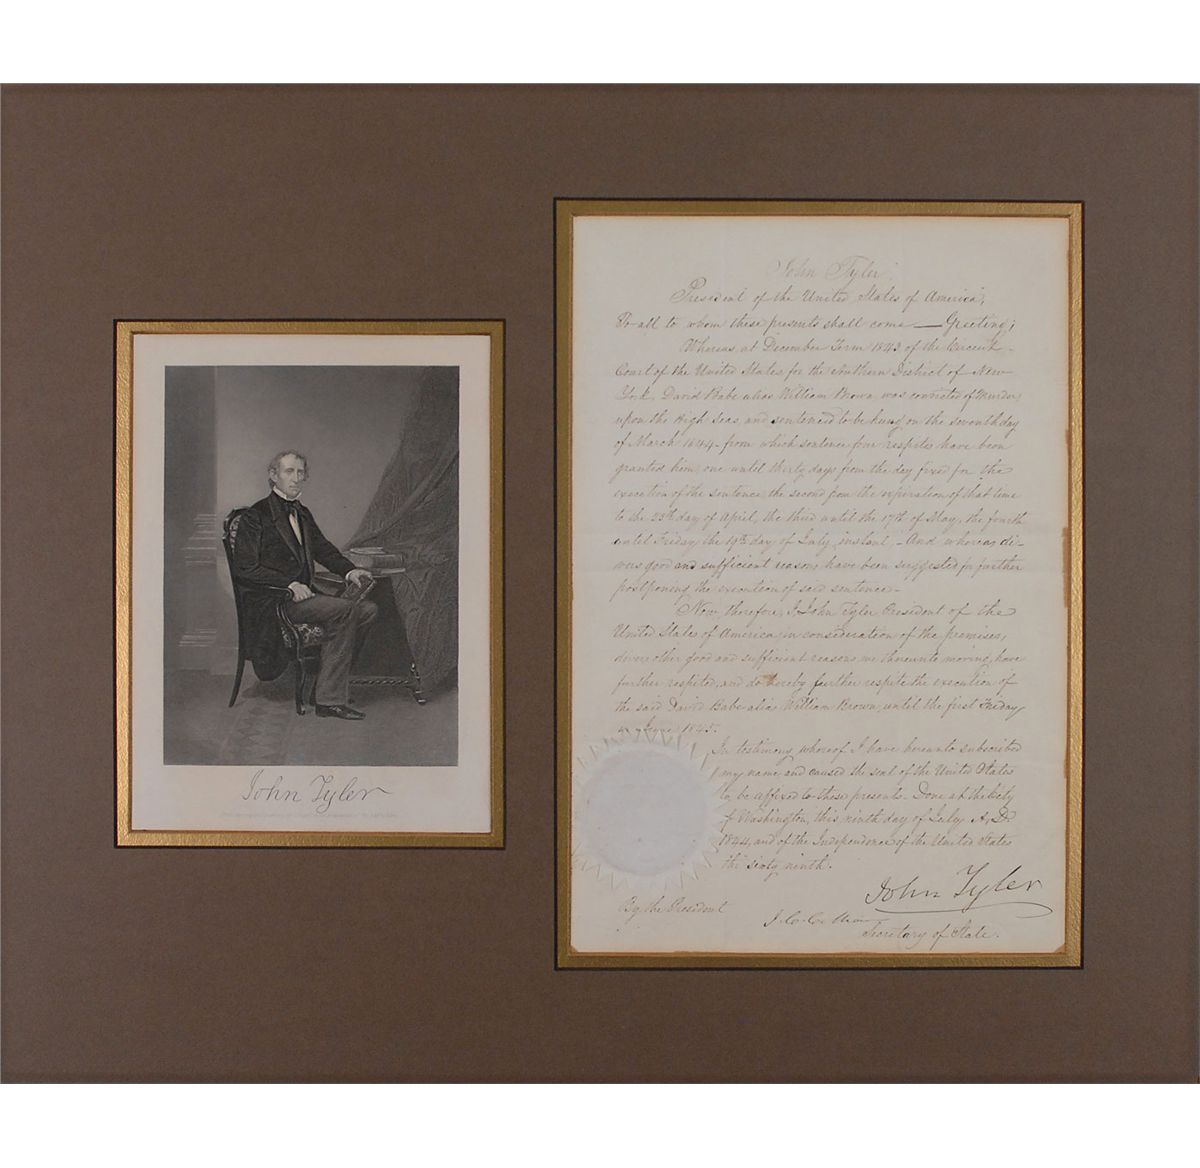 John Tyler
John Tyler.
President of the United States of America,
To all to whom these presents shall come — Greeting;
Whereas, at December Term 1843 of the Circuit
Court of the United States for the Southern District of New
York, David Babe alias William Brown, was convicted of Murder
upon the High Seas, and sentenced to be hung on the seventh day
of March 1844 - from which sentence four respites have been
granted him; one until thirty days from the day fixed for the
execution of the sentence, the second from the expiration of that time
to the 23th day of April, the third until the 17th of May, the fourth
until Friday the 19th day of July, instant, - And whereas di-
vers good and sufficient reasons have been suggested for further
postponing the execution of said sentence -
Now, therefore, I, John Tyler President of the
United States of America, in consideration of the premises,
divers other good and sufficient reasons me thereunto moving, have
further respited, and do hereby further respite the execution of
the said David Babe alias William Brown, until the first Friday
in June 1845.
In testimony whereof I have hereunto subscribed
my name and caused the seal of the United States
to be affixed to these presents. Done at the City
of Washington, this ninth day of July A, D.
1844, and of the Independence of the United States
the sixty ninth.
John Tyler
By the President
J. C. C
Secretary of State.